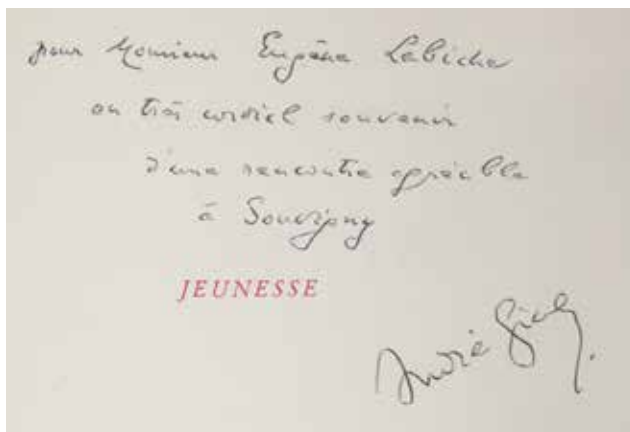 pour Monsieur Eugène Labiche
en très cordial souvenir
d'une rencontre agréable
à Souvigny
JEUNESSE
André Gide.